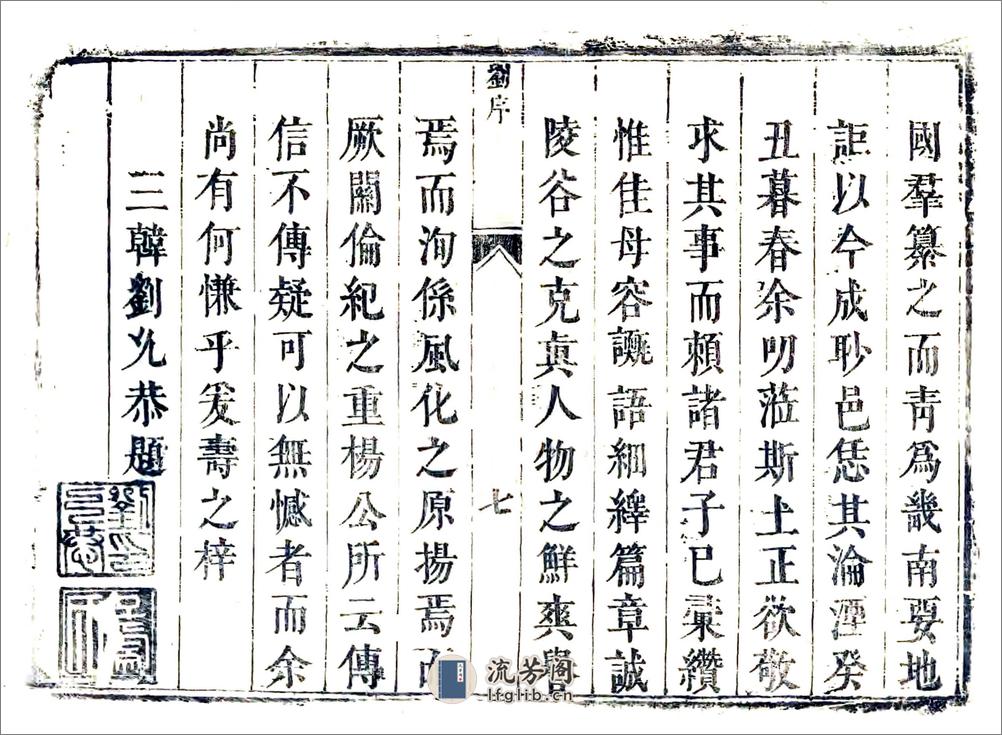 國羣纂之而青為畿南要地
詎以今成耿邑恁其淪湮癸
丑暮春余叨蒞斯土正欲敬
求其事而賴諸君子已彚纘
惟佳毋容譏語細繹篇章誠
陵谷之克真人物之鮮爽
劉序
七
焉而洵係風化之原揚焉
厥關倫紀之重楊公所云傳
信不傳疑可以無憾者而余
尚有何慊乎爰壽之梓
三韓劉允恭題
流芳閣
lfglib.cn